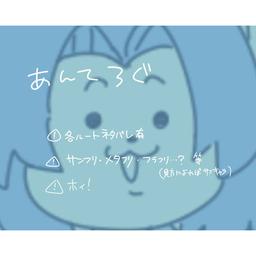 あんてろぐ
⚠ 各ルートネタバレ有
⚠ サンフリ・メタフリ・フラフリ…? 等
(見方によればサンチャラ)
⚠ ホィ!